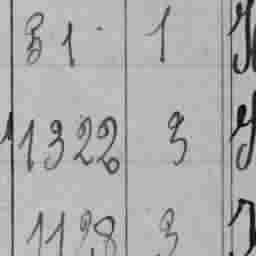 31 1
1322 3
1128 3